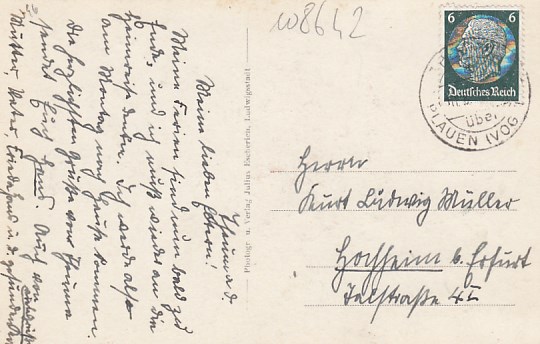 Thimma d.
Meine lieben Eltern!
Meine Ferien sind nun bald zu
Ende, und ich muß wieder an die
Heimreise denken. Ich werde also
am Montag nach Hause kommen.
Die herzlichsten Grüße von
sendet Euch Hans. Auch von
Mutter, Vater,
Photogr. u. Verlag Julius Escherich, Ludwigsstadt
w8642
6 6
Deutsches Reich
über
PLAUEN (VOG
Herrn
Kurt Ludwig Müller
Hochheim b. Erfurt
Talstraße 4